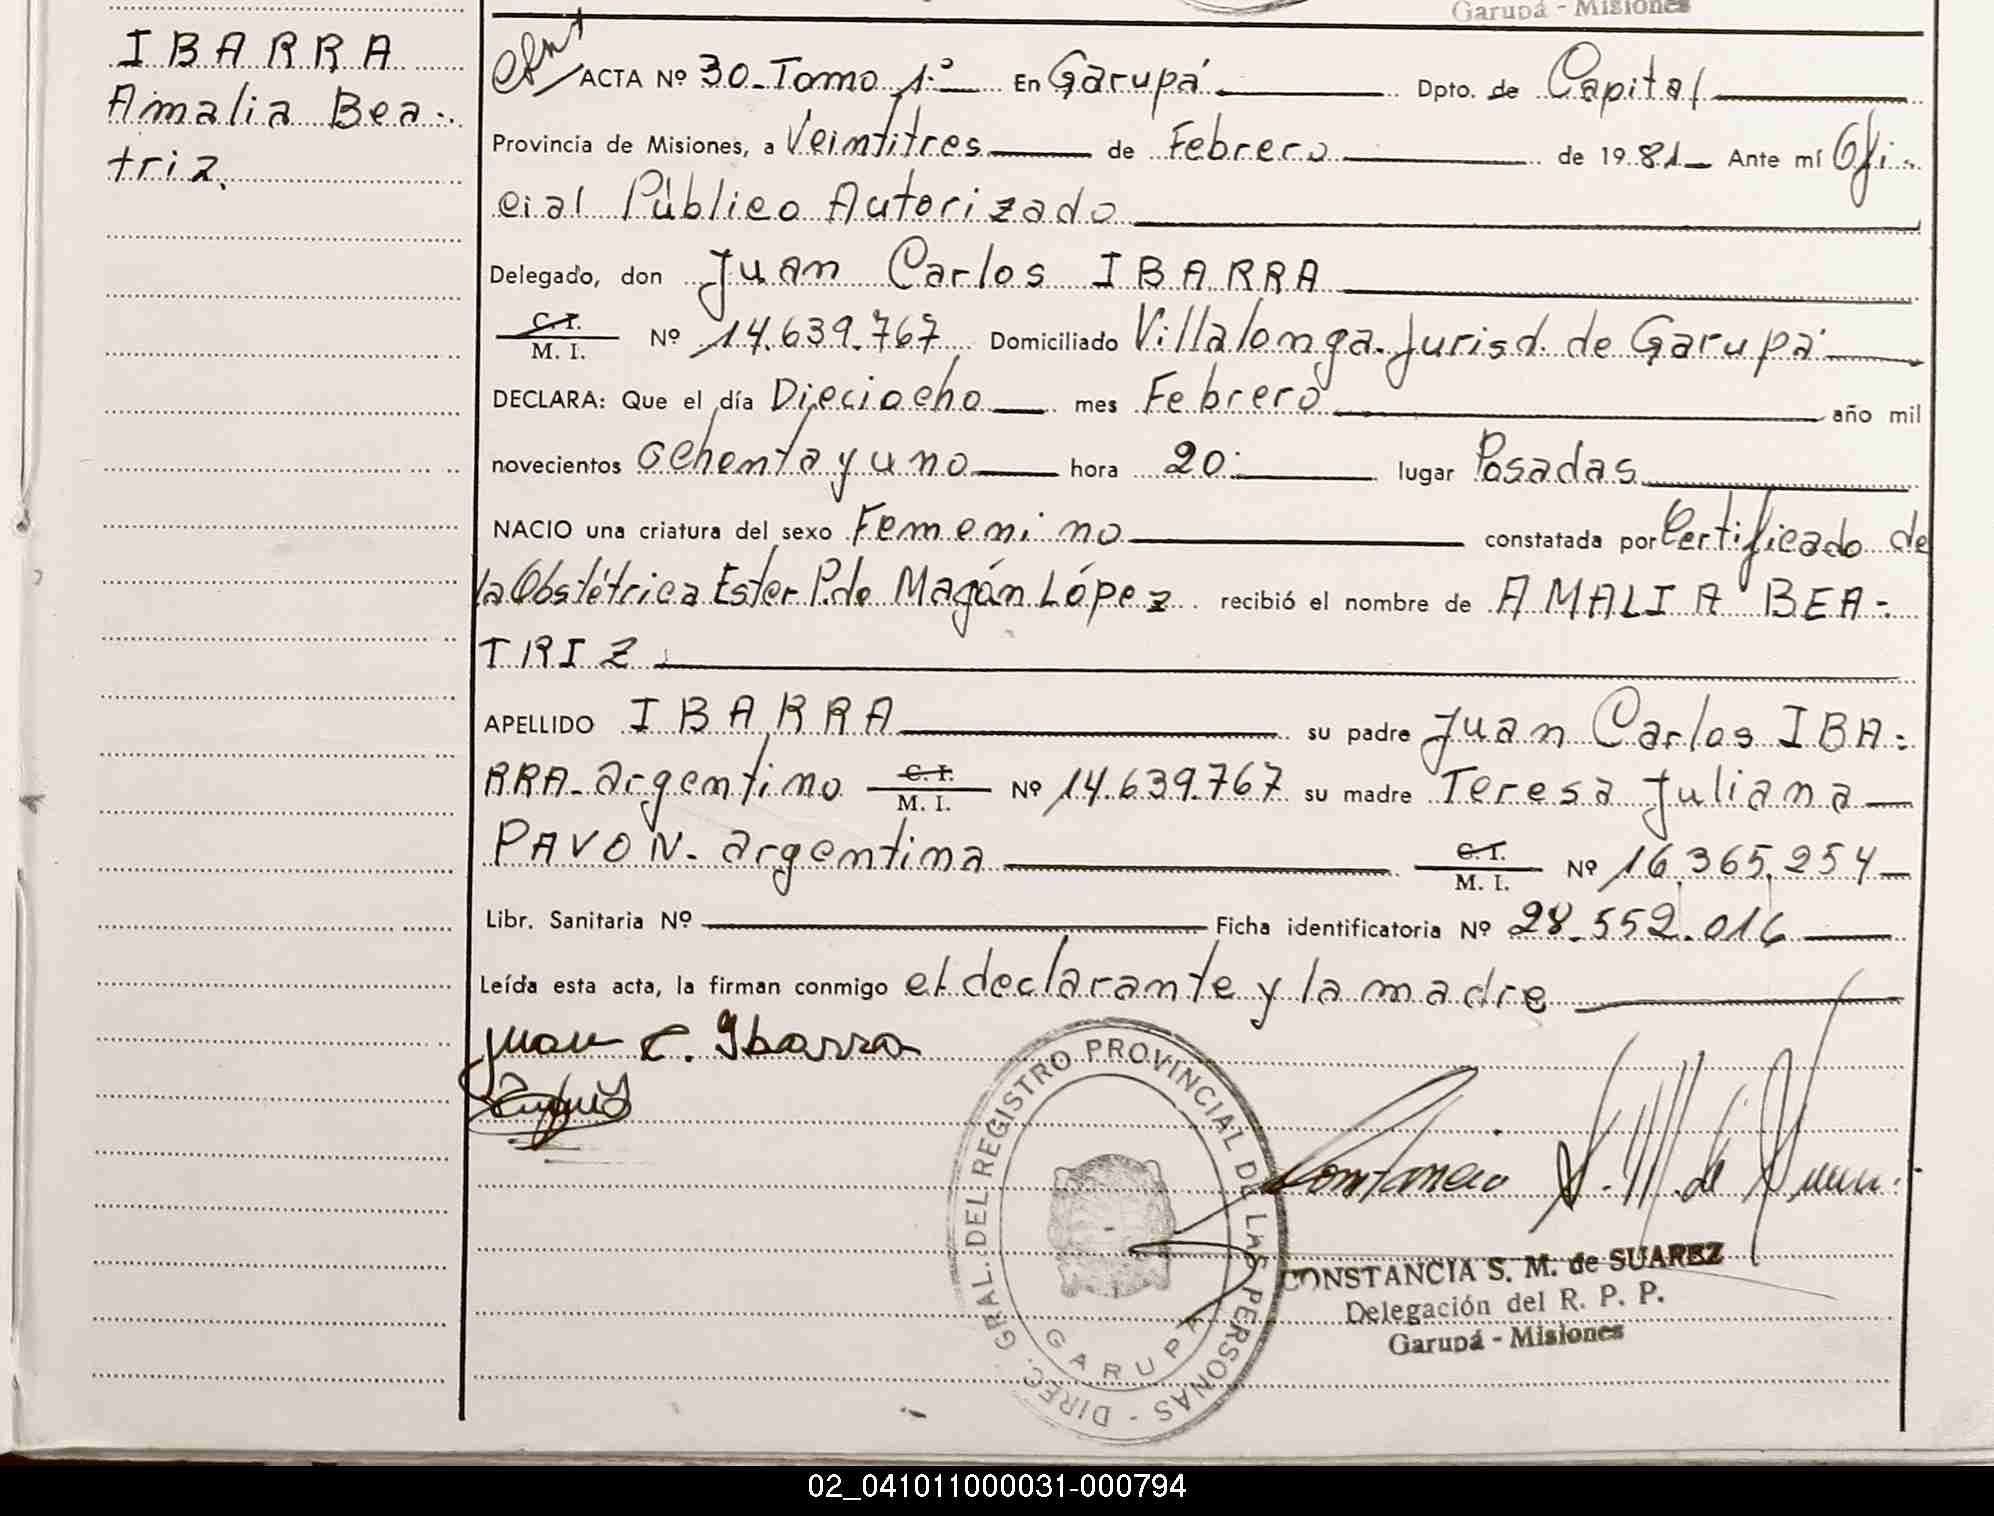 Garupá - Misiones
IBARRA
Amalia Bea-
triz.
ACTA Nº 30-Tomo 1º En Garupá Dpto. de Capital
Provincia de Misiones, a Veintitres de Febrero de 1981 Ante mí Ofi-
cial Público Autorizado
Delegado, don Juan Carlos IBARRA
C. I.
M. I. Nº 14.639.767 Domiciliado Villalonga-Jurisd. de Garupá
DECLARA: Que el día Dieciocho mes Febrero año mil
novecientos ochenta y uno hora 20 lugar Posadas
NACIO una criatura del sexo Femenino constatada por Certificado de
la Obstétrica Ester P. de Magán López recibió el nombre de AMALIA BEA-
TRIZ
APELLIDO IBARRA su padre Juan Carlos IBA-
RRA- argentino C. I. M. I. Nº 14.639.767 su madre Teresa Juliana
PAVON- argentina C. I. M. I. Nº 16.365.254
Libr. Sanitaria Nº Ficha identificatoria Nº 28.552.016
Leída esta acta, la firman conmigo el declarante y la madre
Juan C. Ibarra
DIREC. GRAL. DEL REGISTRO PROVINCIAL DE LAS PERSONAS -
GARUPA
CONSTANCIA S. M. de SUAREZ
Delegación del R. P. P.
Garupá - Misiones
02_041011000031-000794